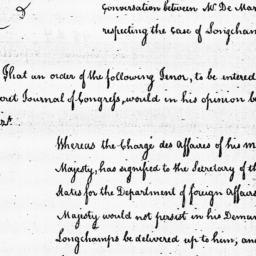 Conversation between Mr. De Mar
respecting the Case of Longcham
That an order of the following Tenor, to be entered
cret Journal of Congress, would in his opinion be
Whereas the Charge des Affaires of his m
Majesty, has signified to the Secretary of th
States for the Department of foreign Affairs
Majesty would not persist in his Deman
Longchamps be delivered up to him, and